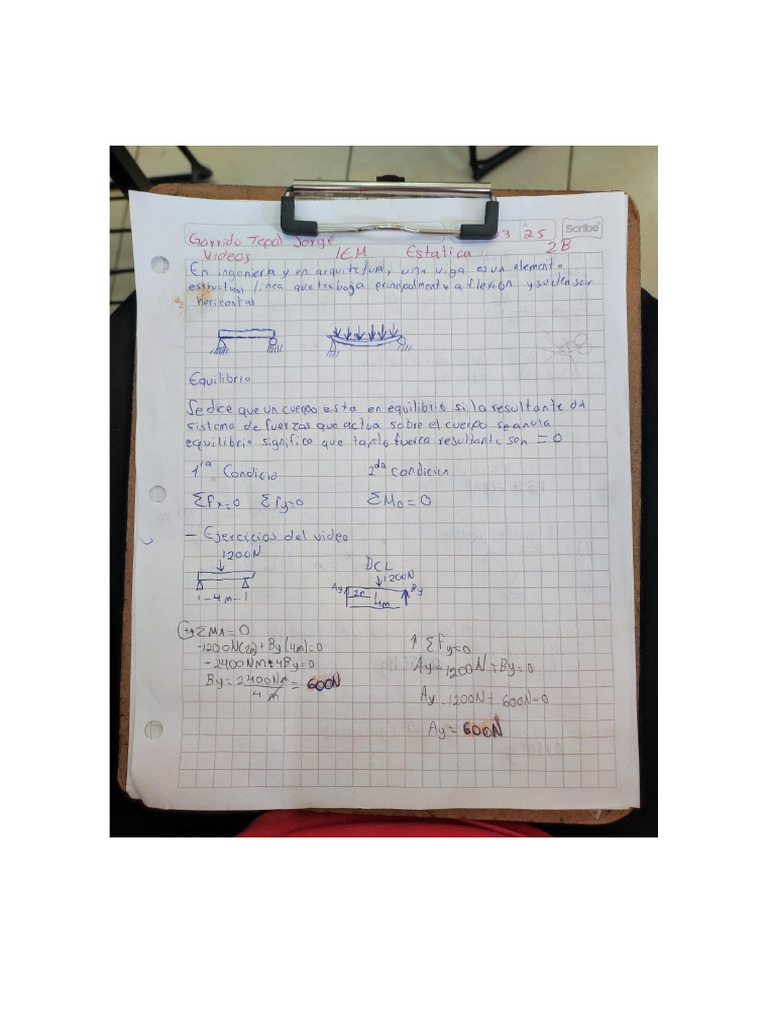 Scribe
3 25
Garrido Tepal Jorge
Videos IEM Estatica 2B
En ingenieria y en arquitectura, una viga es un elemento
estructural linea que trabaja principalmente a flexion y suelen ser
horizontal
Equilibrio
Se dice que un cuerpo esta en equilibrio si la resultante del
sistema de fuerzas que actua sobre el cuerpo se anula
equilibrio significa que fuerza resultante son = 0
1ra Condicio 2da Condicion
ΣFx=0 ΣFy=0 ΣMo=0
- Ejercicios del video
1200N DCL
1200N
Ay 2m By
4m
4m
+ΣMA=0
-1200N(2m)+By(4m)=0
-2400Nm+4By=0
By=2400Nm/4m=600N
↑ΣFy=0
Ay-1200N+By=0
Ay-1200N+600N=0
Ay=600N